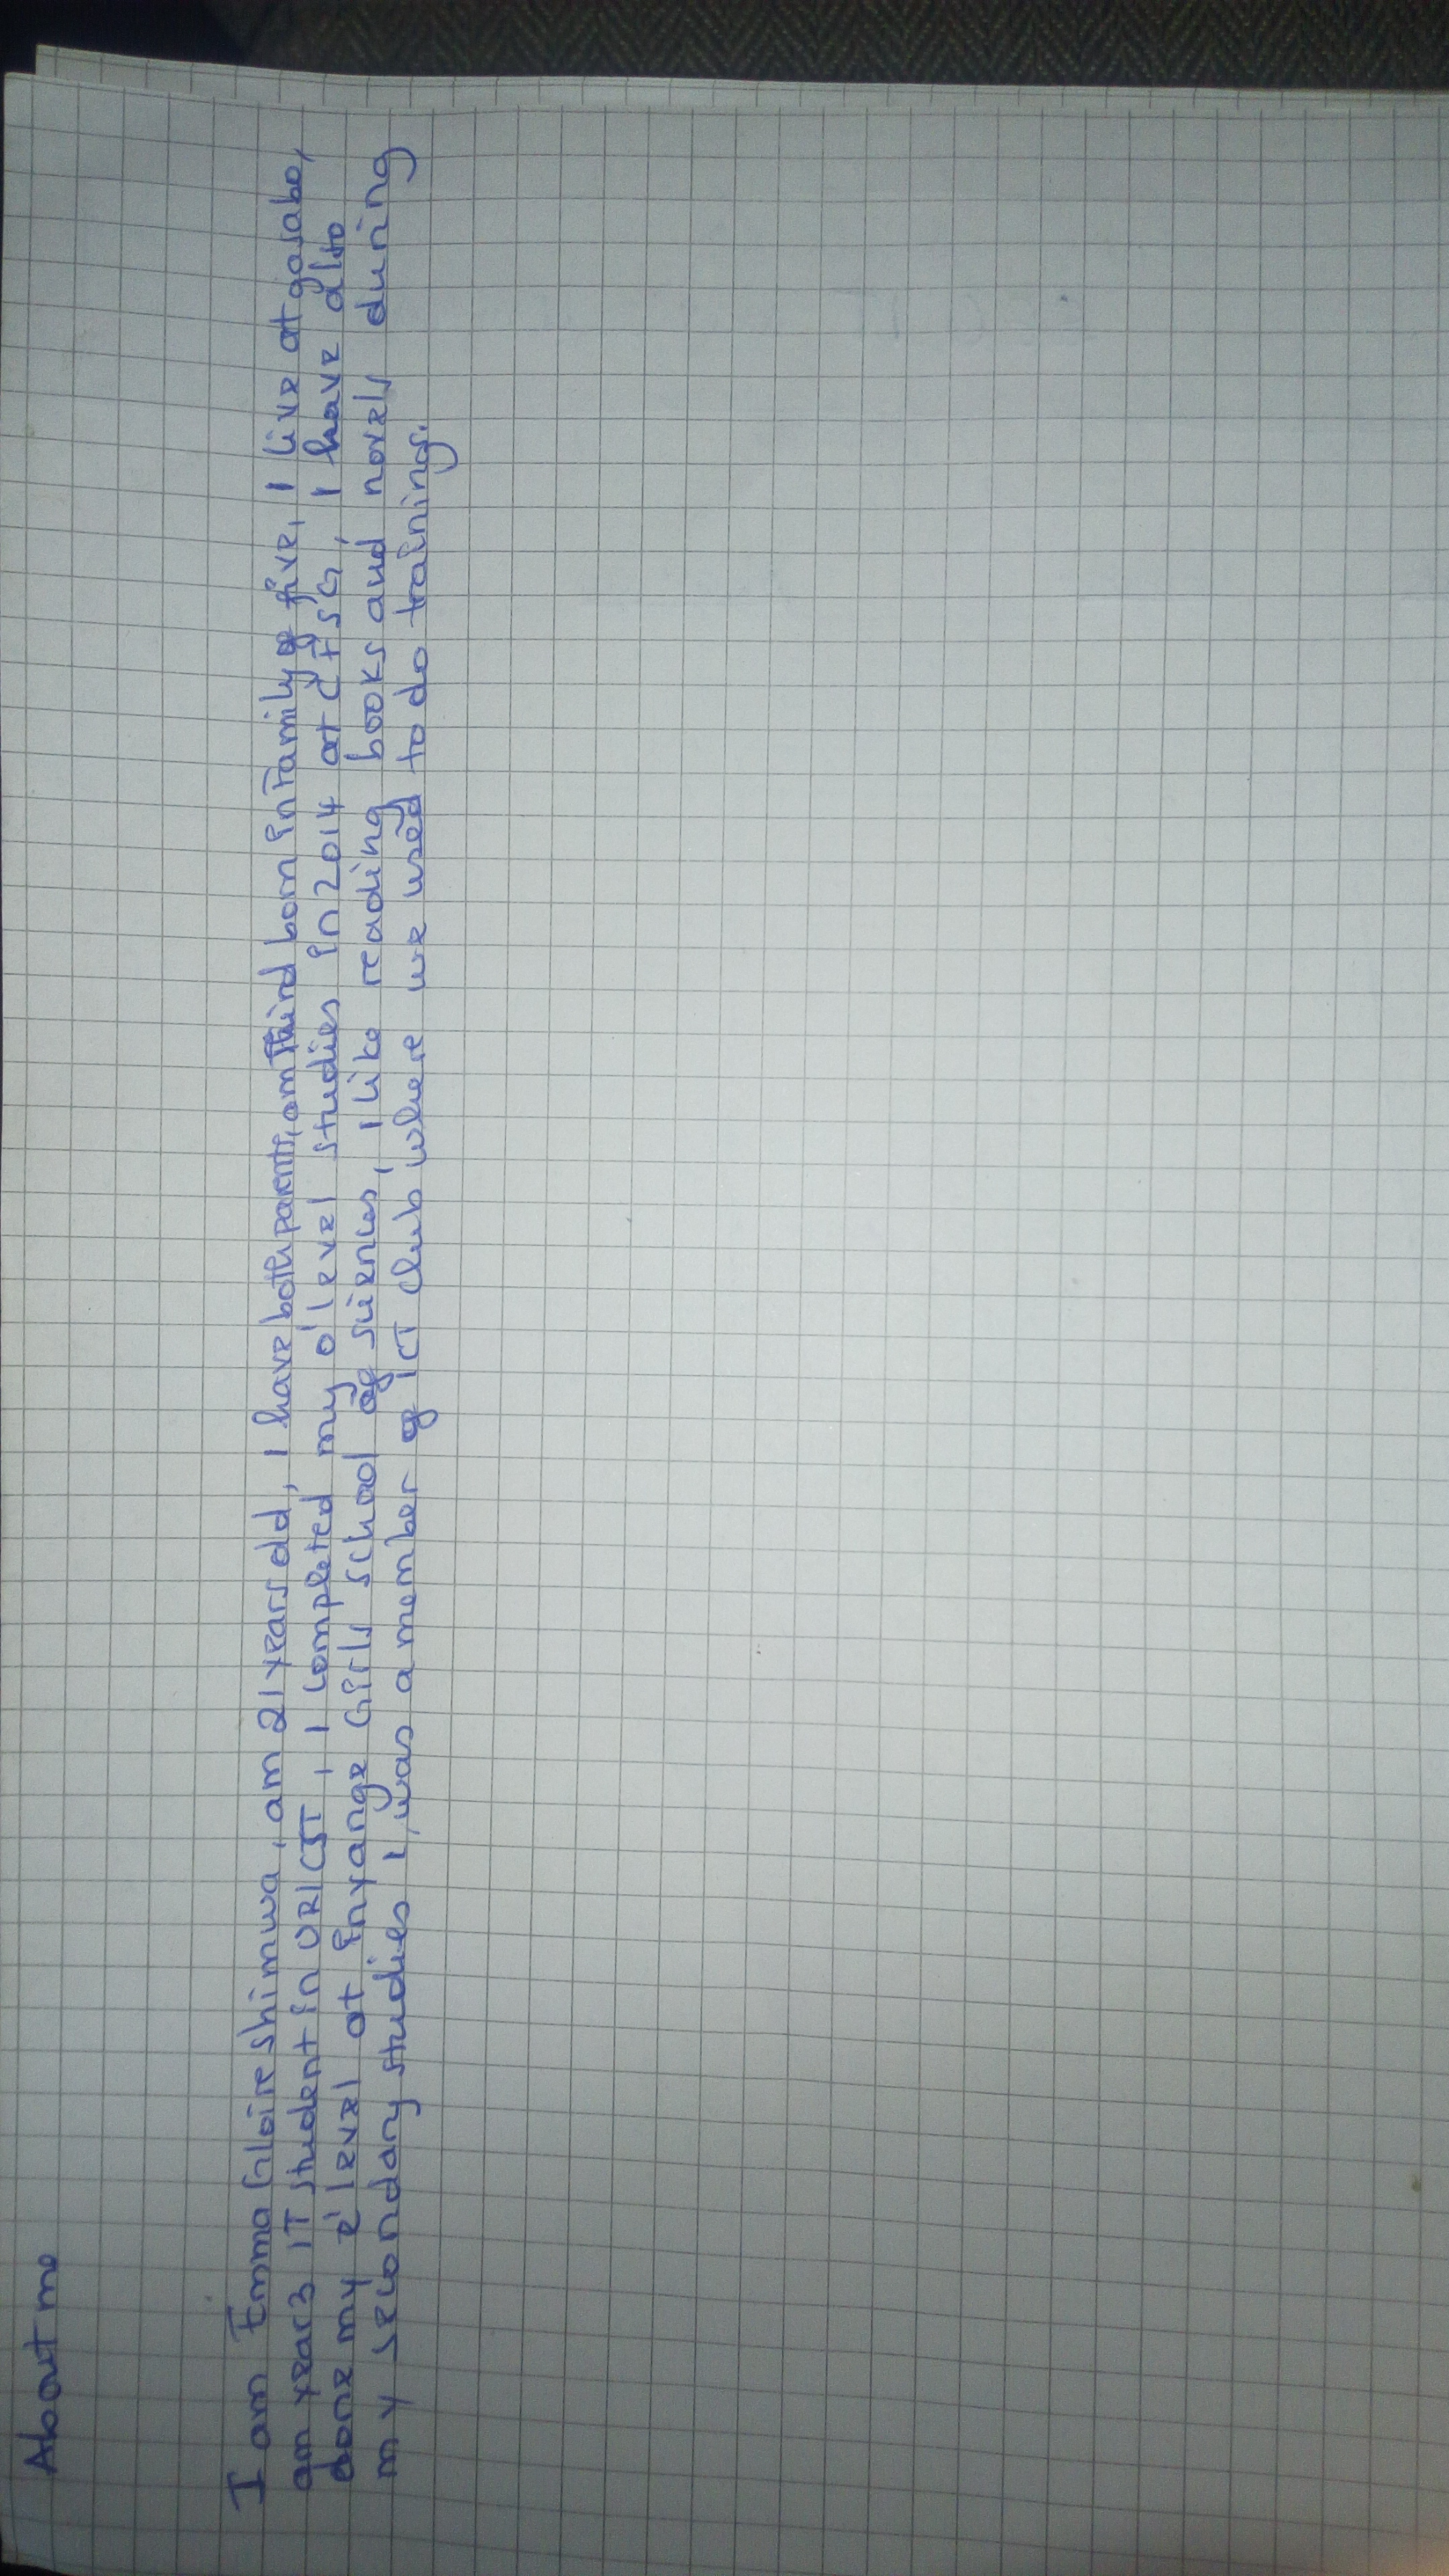 About me
I am Emma Gloire shimwa, am 21 years old, I have both parents, am Third born in Family of five, I live at gasabo,
am year3 IT student in UR/CST, I completed my o'level studies in 2014 at CFSG, I have also
done my e'level at inyange Girls school of sciences, I like reading books and novels during
my secondary studies I, was a member of ICT club where we used to do trainings.